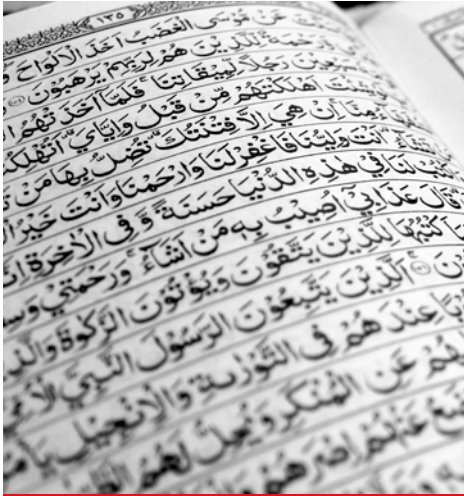 ١٣٥
عَنْ مُّوْسَى الْغَضَبُ اَخَذَ الْاَلْوَاحَ
وَّرَحْمَةٌ لِّلَّذِيْنَ هُمْ لِرَبِّهِمْ يَرْهَبُوْنَ
سَبْعِيْنَ رَجُلًا لِّمِيْقَاتِنَا ۚ فَلَمَّآ اَخَذَتْهُمُ
شِئْتَ اَهْلَكْتَهُمْ مِّنْ قَبْلُ وَاِيَّايَ ؕ اَتُهْلِكُ
مِنَّا ۚ اِنْ هِيَ اِلَّا فِتْنَتُكَ ؕ تُضِلُّ بِهَا مَنْ
تَشَآءُ ؕ اَنْتَ وَلِيُّنَا فَاغْفِرْ لَنَا وَارْحَمْنَا وَاَنْتَ خَيْرُ
لَنَا فِيْ هٰذِهِ الدُّنْيَا حَسَنَةً وَّفِي الْاٰخِرَةِ
قَالَ عَذَابِيْٓ اُصِيْبُ بِهٖ مَنْ اَشَآءُ ۚ وَرَحْمَتِيْ
اَكْتُبُهَا لِلَّذِيْنَ يَتَّقُوْنَ وَيُؤْتُوْنَ الزَّكٰوةَ
الَّذِيْنَ يَتَّبِعُوْنَ الرَّسُوْلَ النَّبِيَّ
عِنْدَهُمْ فِي التَّوْرٰىةِ وَالْاِنْجِيْلِ
عَنِ الْمُنْكَرِ وَيُحِلُّ لَهُمُ
عَنْهُمْ اِصْرَهُمْ